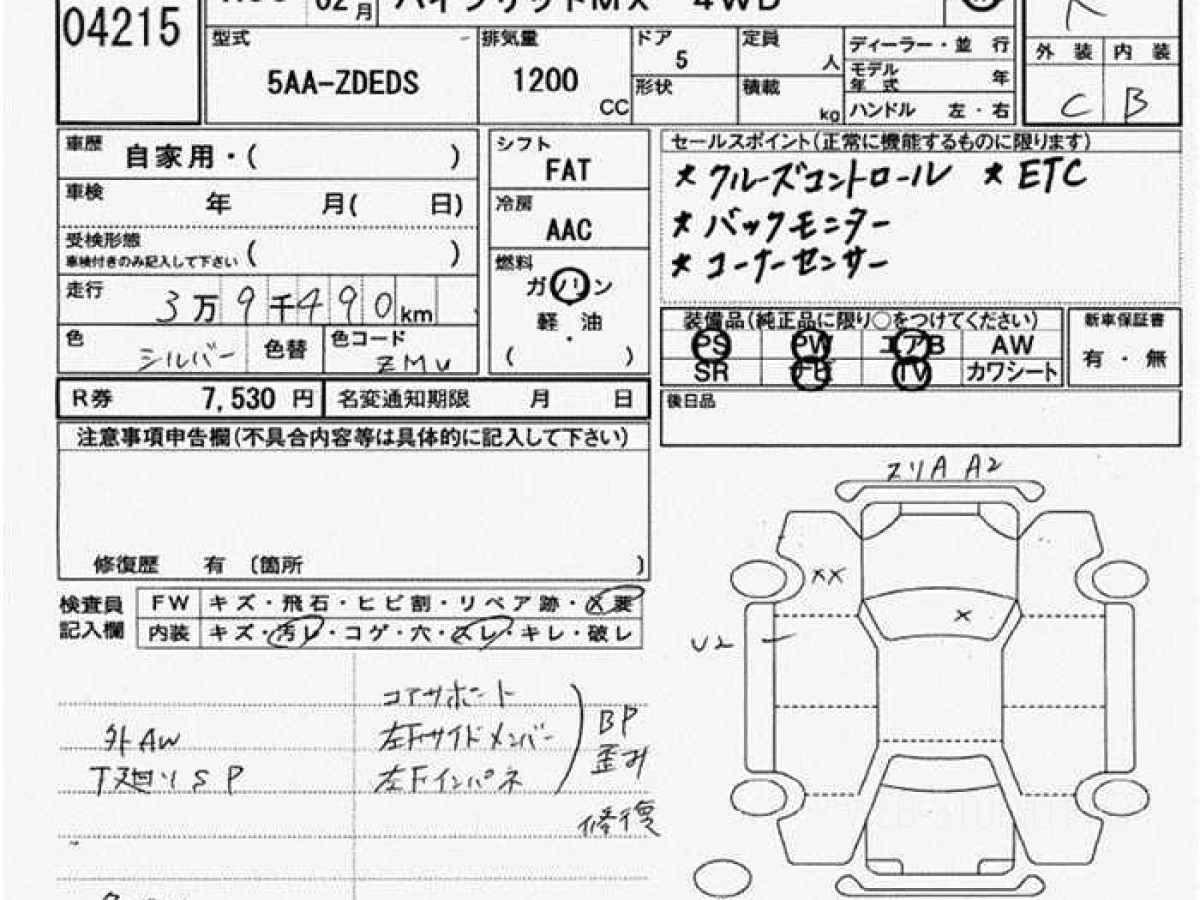 04215
02月
ハイブリッドMX 4WD
型式
5AA-ZDEDS
排気量
1200
CC
ドア
5
形状
定員
人
積載
kg
ディーラー・並 行
モデル年式 年
ハンドル 左・右
外 装 内 装
C B
車歴
自家用・( )
車検
年 月( 日)
受検形態
車検付きのみ記入して下さい ( )
走行
3万9千490km
色
シルバー
色替
色コード
ZMU
シフト
FAT
冷房
AAC
燃料
ガソリン
軽 油
・
( )
セールスポイント(正常に機能するものに限ります)
★ クルーズコントロール ★ ETC
★ バックモニター
★ コーナーセンサー
装備品(純正品に限り○をつけてください)
PS PW エアB AW
SR ナビ TV カワシート
新車保証書
有・無
R券 7,530 円
名変通知期限 月 日
後日品
注意事項申告欄(不具合内容等は具体的に記入して下さい)
修復歴 有 (箇所 )
検査員
記入欄
FW キズ・飛石・ヒビ割・リペア跡・X要
内装 キズ・汚レ・コゲ・穴・スレ・キレ・破レ
外AW
下廻りSP
コアサポート
左Fサイドメンバー
左Fインパネ
BP
歪み
修復
スリA A2
XX
X
U2